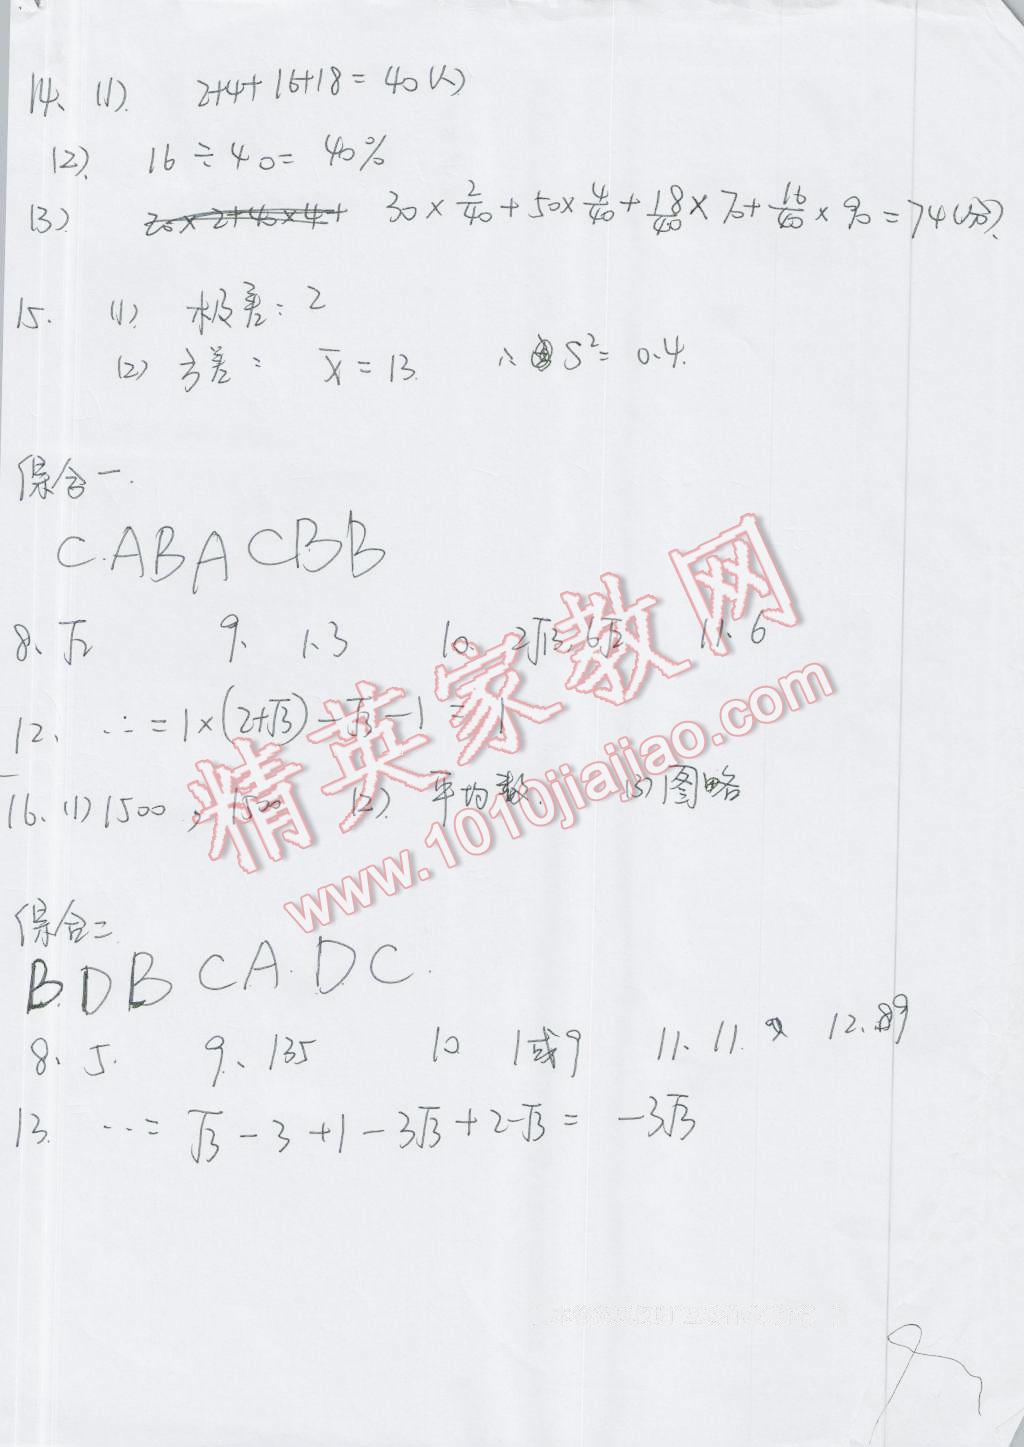 14、(1). 2+4+16+18=40(人)
(2). 16÷40=40%
(3) 30×2/40+50×4/40+18/40×70+16/40×90=74(分).
15. (1). 极差: 2
(2) 方差: x̄=13. ∴ S²=0.4.
综合一.
C.ABACBB
8、√2 9、1.3 10. 2√13, 6√2 11、6
12、∴=1×(2+√3)-√3-1=1
16、(1)1500, 1500 (2). 平均数. (3)图略
综合二
B.DBCA.DC.
8、5. 9、135 10 1或9 11. 11. 12. 89
13. …=√3-3+1-3√3+2-√3=-3√3
精英家教网
www.1010jiajiao.com